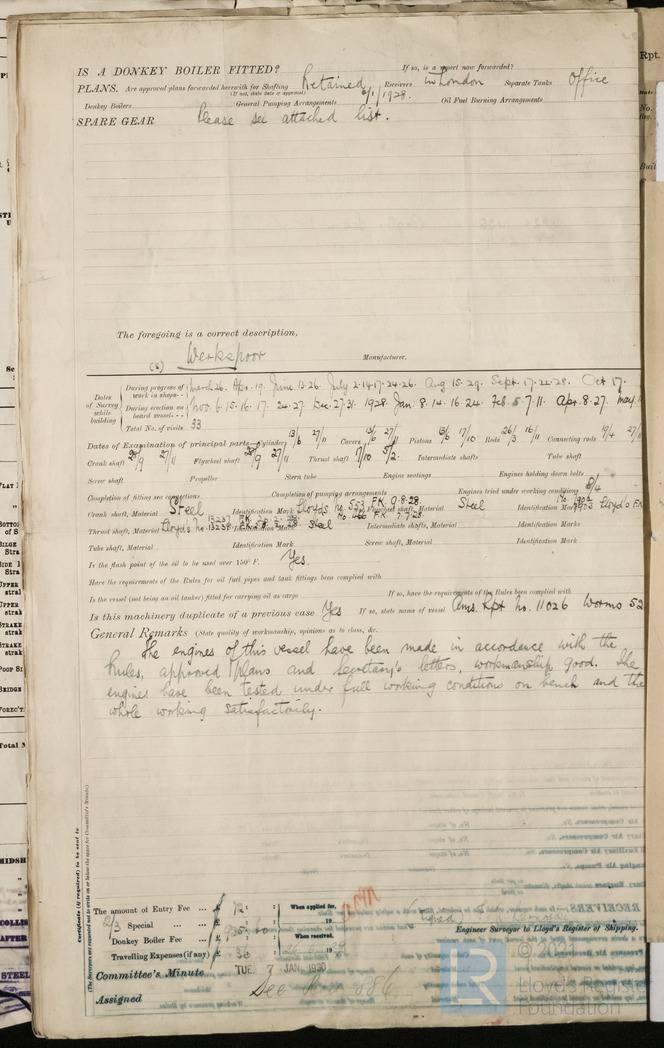 IS A DONKEY BOILER FITTED? If so, is a report now forwarded?
PLANS. Are approved plans forwarded herewith for Shafting Retained 6/1/1928. Receivers in London Separate Tanks Office
(If not, state date of approval)
Donkey Boilers General Pumping Arrangements Oil Fuel Burning Arrangements
SPARE GEAR Please see attached list.
The foregoing is a correct description,
(s) Werkspoor Manufacturer.
Dates of Survey while building
During progress of work in shops-- March 26. Apr. 19. June 13.26. July 2.14.17.24.26. Aug 15.29. Sept. 17.22.28. Oct 17.
During erection on board vessel--- Nov. 6.15.16.17.24.27 Dec. 27.31. 1928. Jan. 8.14.16.24. Feb. 5.7.11. Apr. 8.27. May.
Total No. of visits 33
Dates of Examination of principal parts—Cylinder 13/6 27/11 Covers 13/6 27/11 Pistons 13/6 17/10 Rods 26/3 16/11 Connecting rods 19/4 27/11
Crank shaft 28/9 27/11 Flywheel shaft 28/9 27/11 Thrust shaft 7/10 5/2. Intermediate shafts Tube shaft
Screw shaft Propeller Stern tube Engine seatings Engines holding down bolts
Completion of fitting sea connections Completion of pumping arrangements Engines tried under working conditions 8/4
Crank shaft, Material Steel Identification Mark Lloyds No. 553 F.K. 9.8.28. Flywheel shaft, Material Steel Identification Mark Lloyd's F.K.
Thrust shaft, Material Steel Identification Mark Intermediate shafts, Material Identification Marks
Tube shaft, Material Identification Mark Screw shaft, Material Identification Mark
Is the flash point of the oil to be used over 150° F. Yes.
Have the requirements of the Rules for oil fuel pipes and tank fittings been complied with
Is the vessel (not being an oil tanker) fitted for carrying oil as cargo If so, have the requirements of the Rules been complied with
Is this machinery duplicate of a previous case Yes If so, state name of vessel Ams. Rpt No. 11026 Worms 52
General Remarks (State quality of workmanship, opinions as to class, &c.
The engines of this vessel have been made in accordance with the
Rules, approved plans and Secretary's letters, workmanship good. The
engines have been tested under full working conditions on bench and the
whole working satisfactorily.
Certificate (if required) to be sent to
(The Surveyors are requested not to write on or below the space for Committee's Minute.)
The amount of Entry Fee ... £ 72 : : When applied for,
2/3 Special ... ... £ : : 19
Donkey Boiler Fee ... £ : : When received,
Travelling Expenses (if any) £ 36 : : 19
Engineer Surveyor to Lloyd's Register of Shipping.
Committee's Minute TUE. 7 JAN 1930
Assigned See
© 2021
Lloyd's Register
Foundation